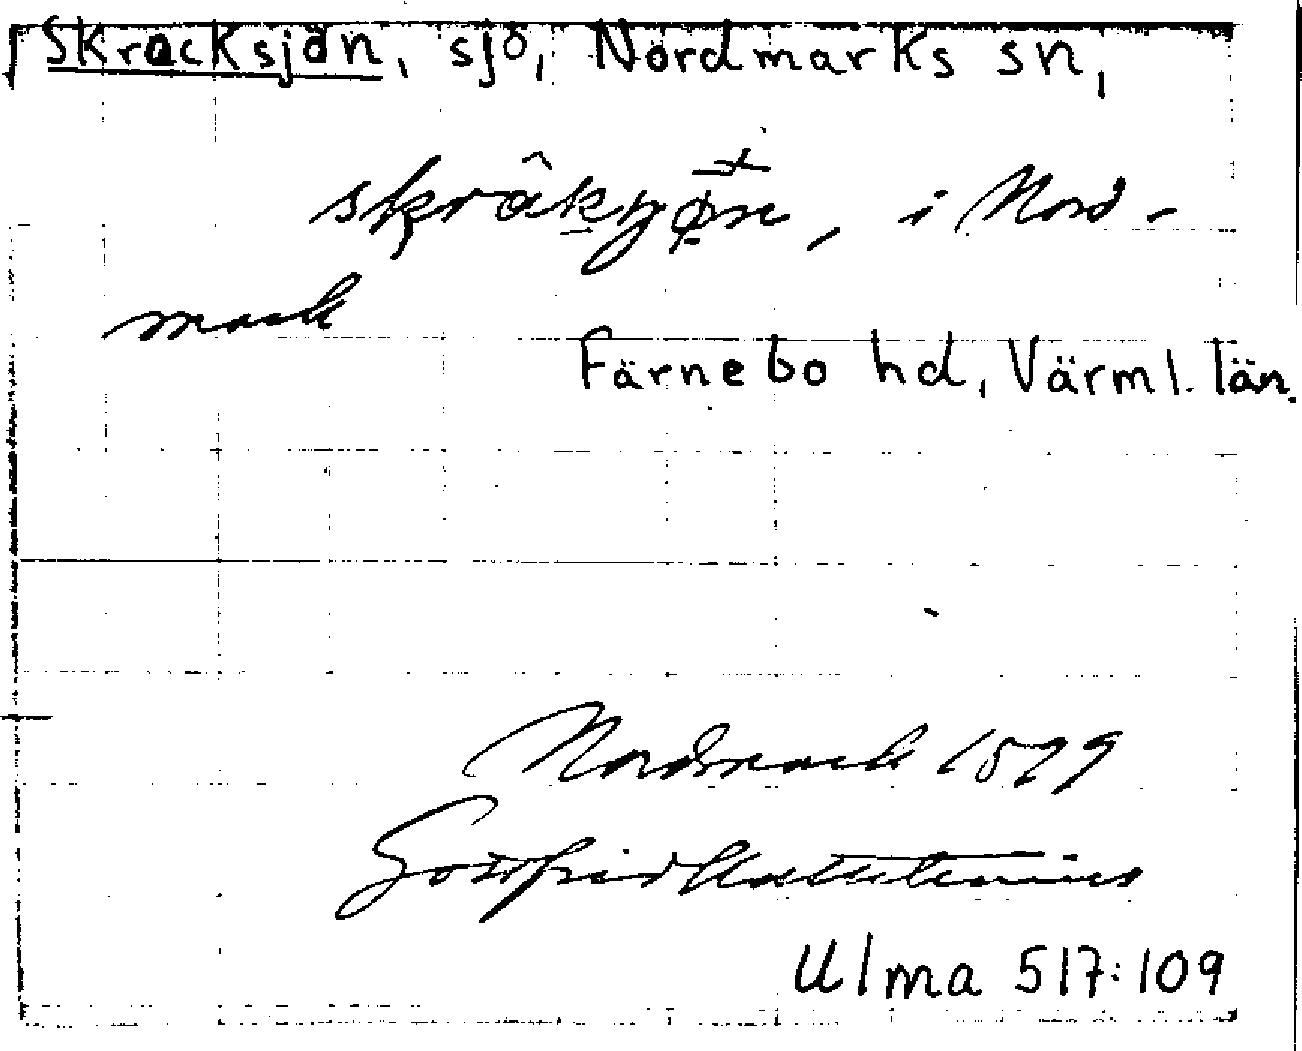 Skracksjön, sjö, Nordmarks sn,
i Nord-
mark
Färnebo hd, Värml. län.
Nordmark 1879
Gottfrid Kallstenius
Ulma 517:109